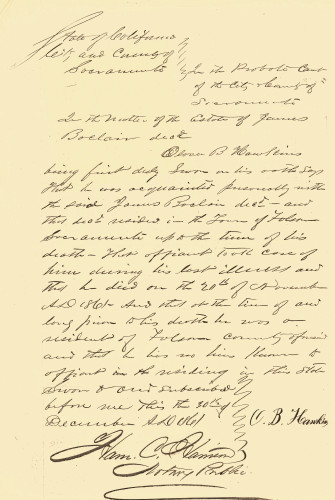 State of California
City and County of
Sacramento
In the Probate Court
of the City & County of
Sacramento
In the Matter of the Estate of James
Boclair decd
Oliver B. Hawkins
being first duly Sworn on his oath Says
that he was acquainted personally with
the said James Boclair decd - and
that decd resided in the Town of Folsom
Sacramento up to the time of his
death - that affiant took care of
him during his last illness and
that he died on the 20th of November
A.D. 1861 - And that at the time of and
long prior to his death he was a
resident of Folsom county aforesaid
and that he has no kin known to
affiant in the residing in this State
Sworn to and Subscribed
before me this the 30th of
December A.D. 1861
O. B. Hawkins
Notary Public